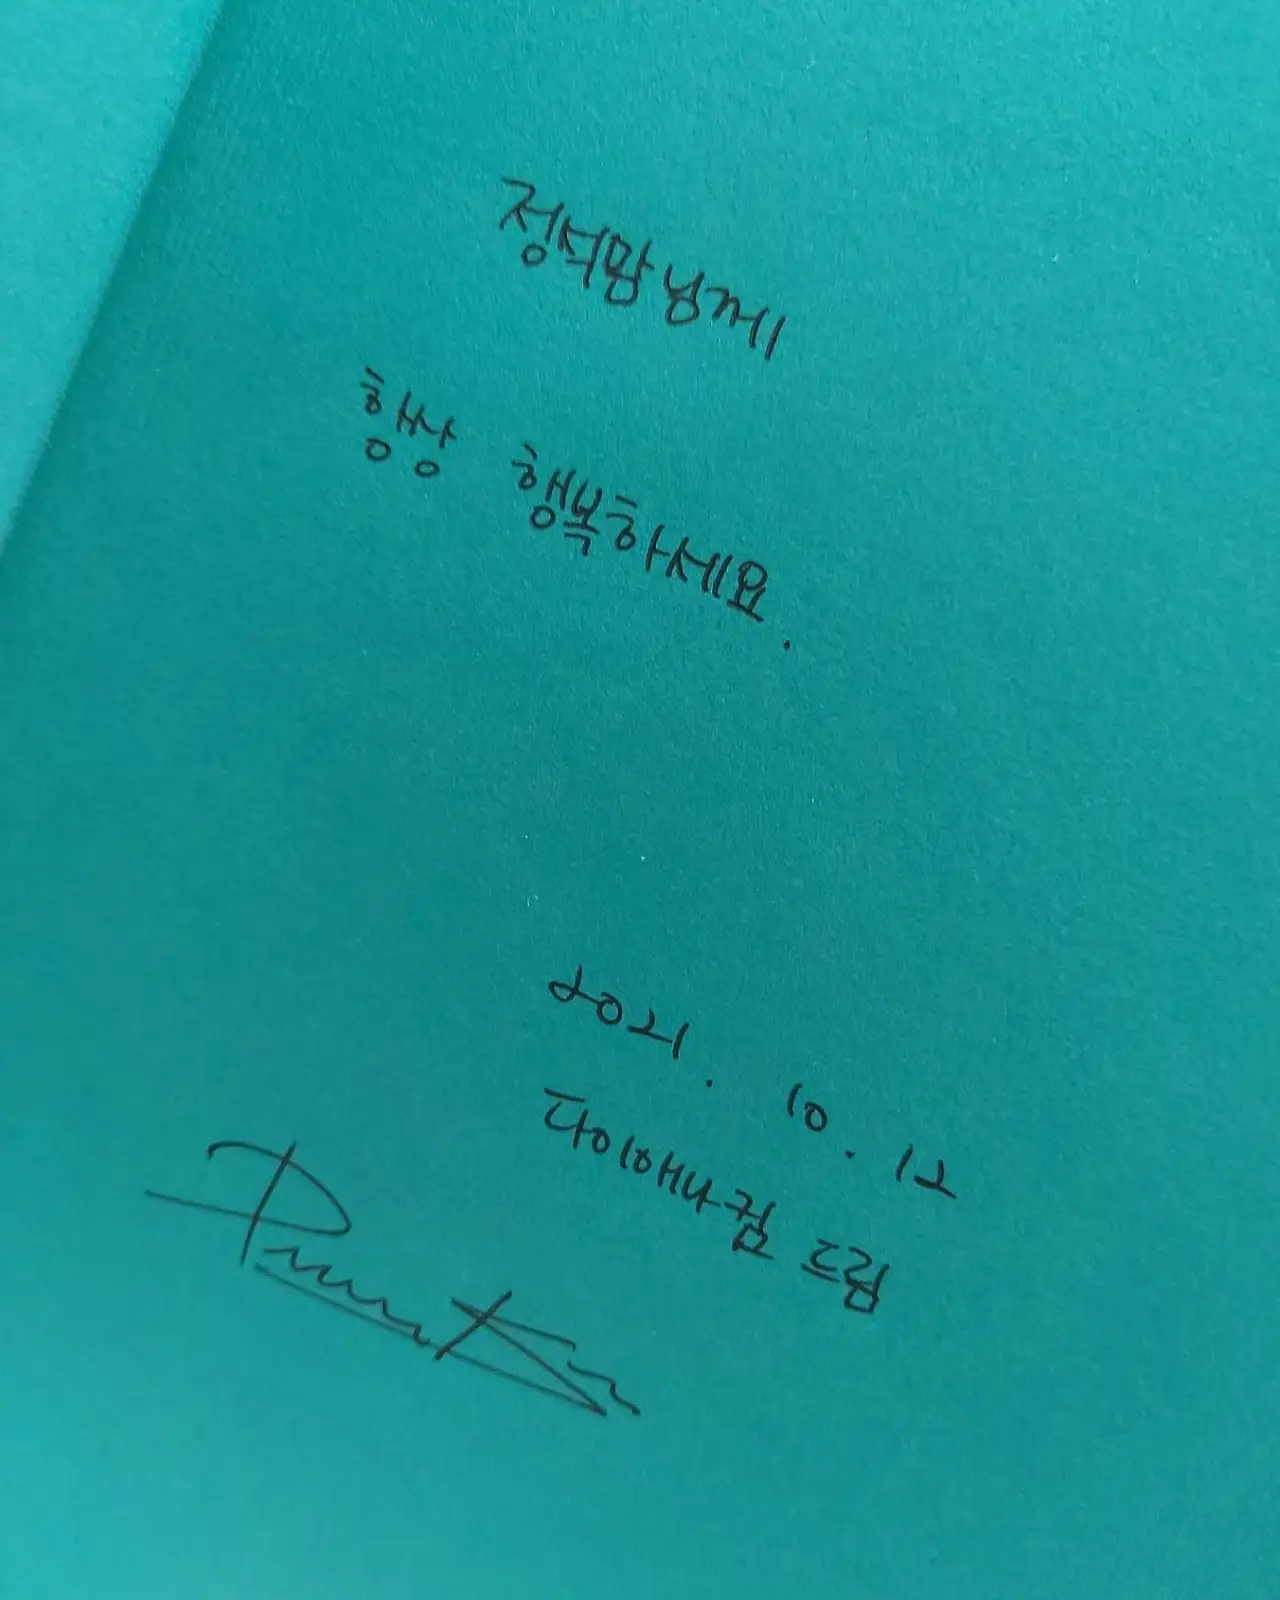 정석맘 님께
항상 행복하세요.
2021. 10. 12
다이애나킴 드림